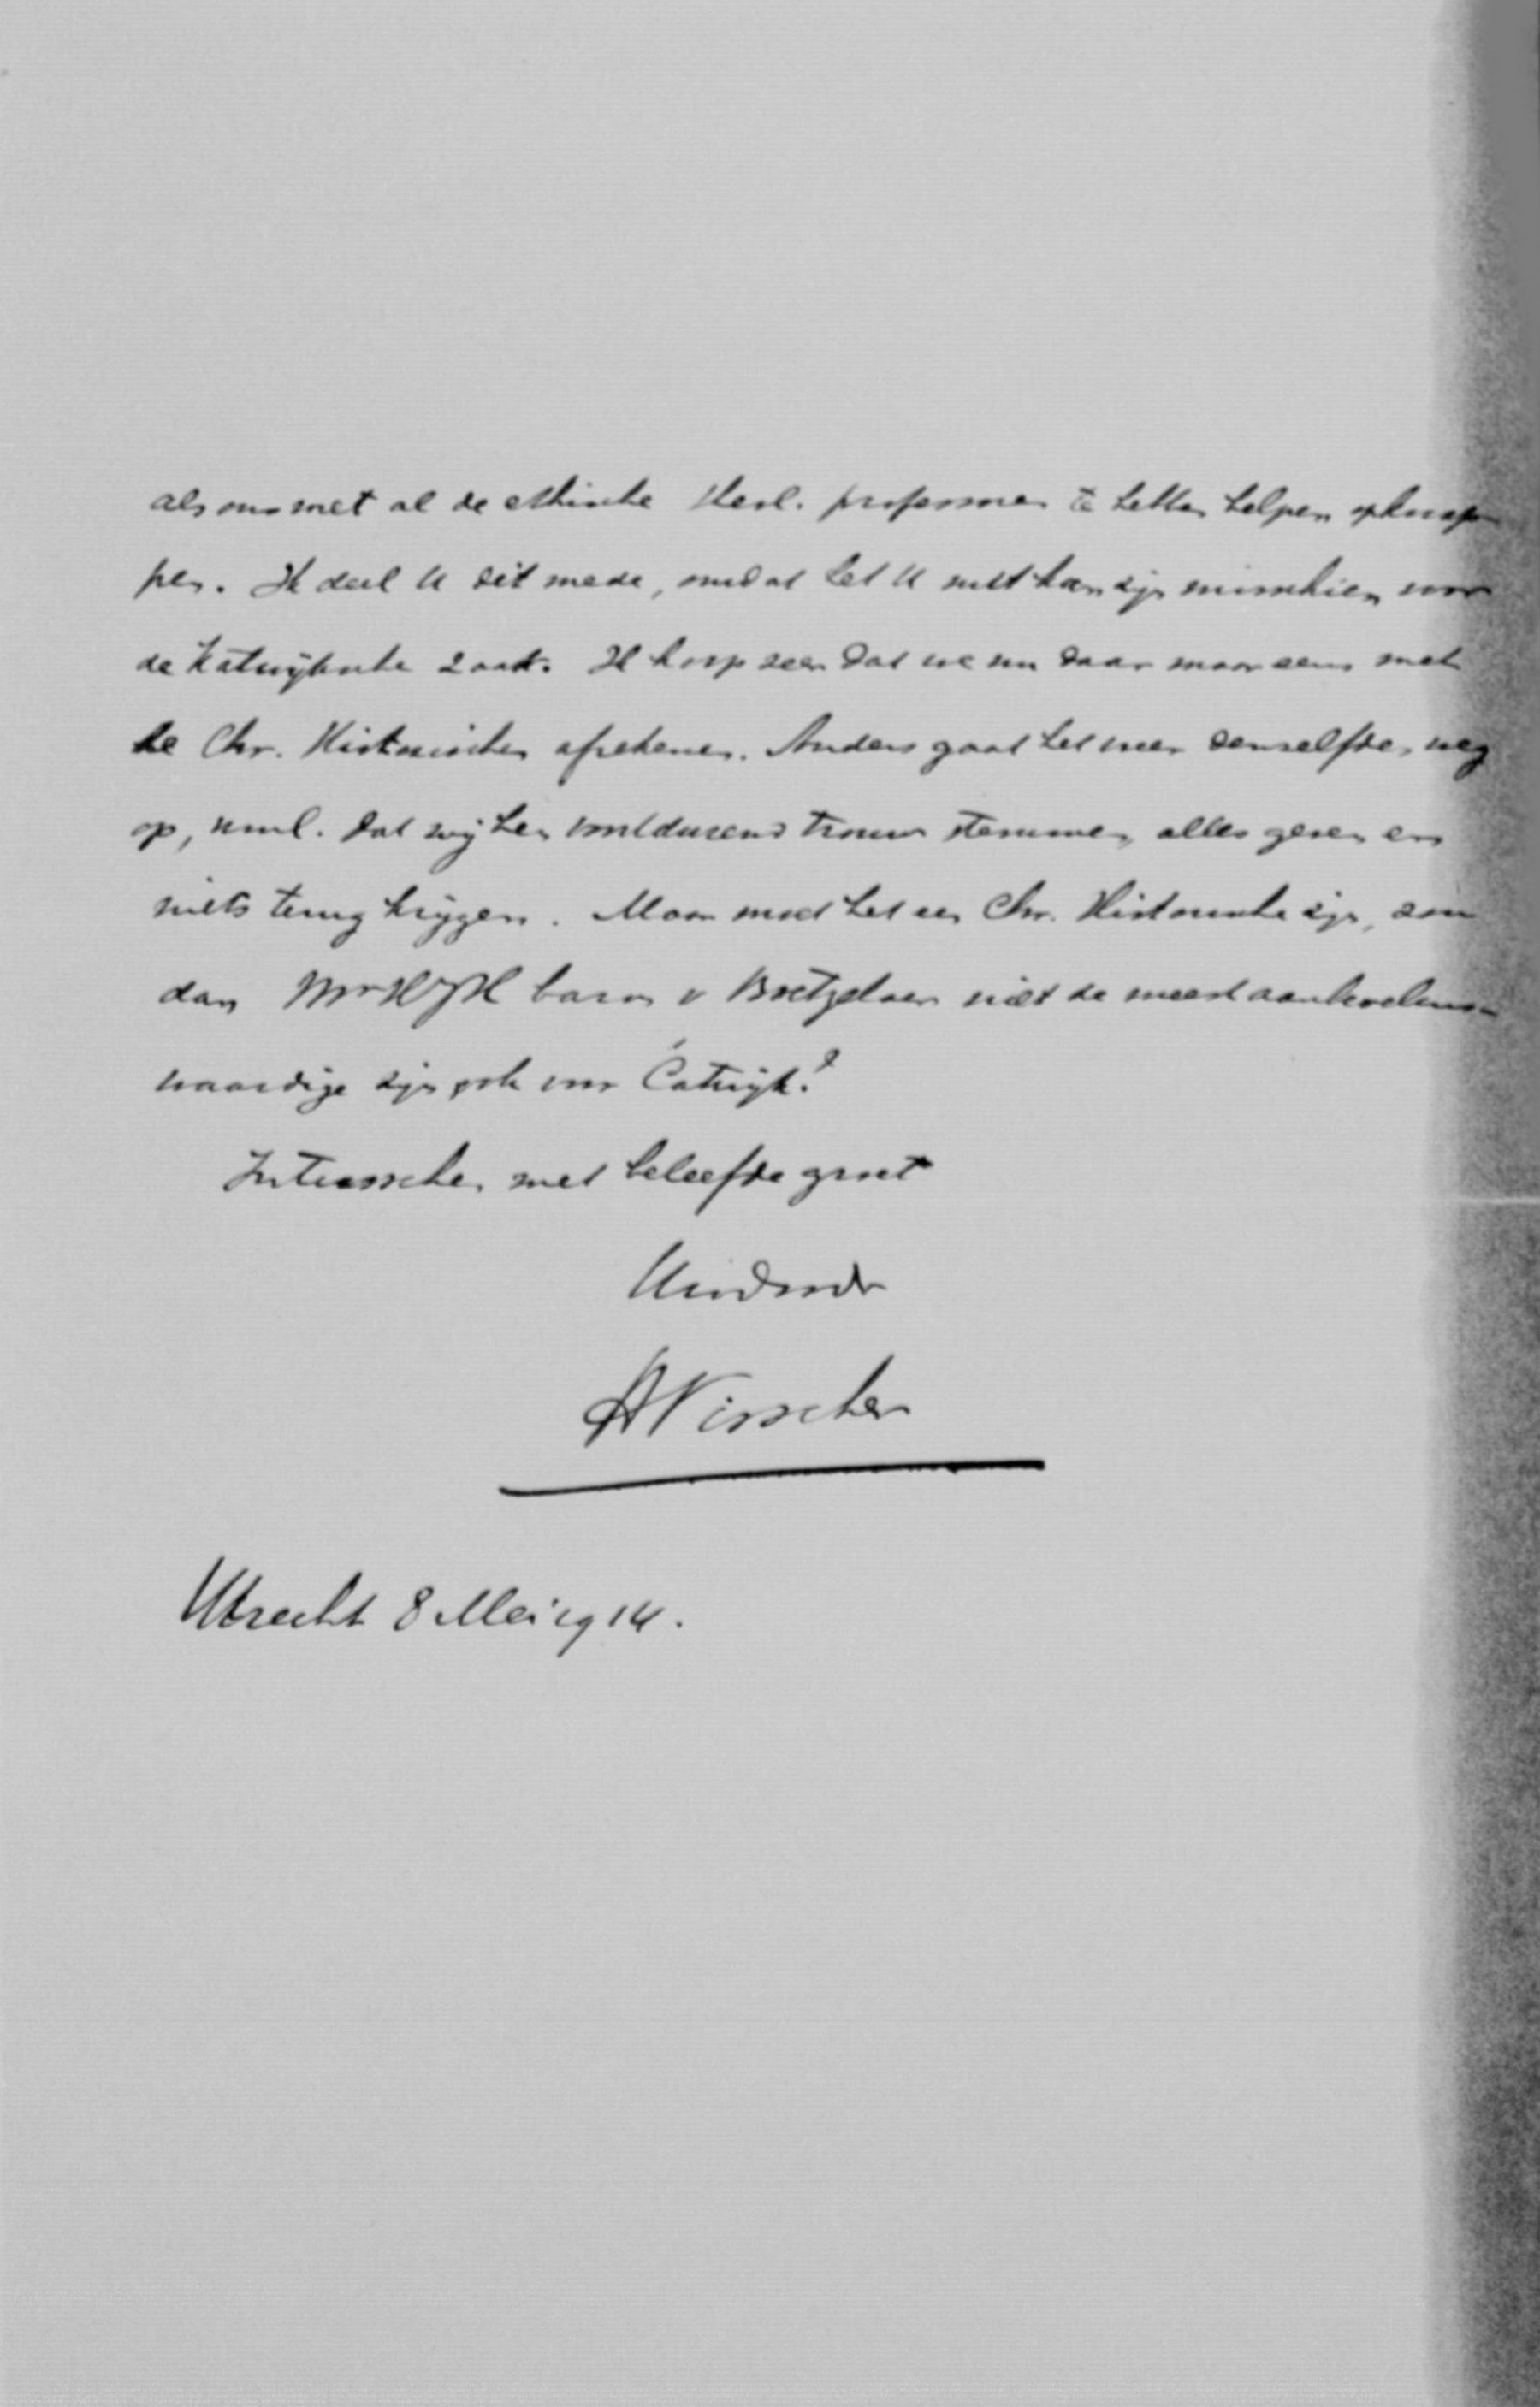 als ons met al de ethische Herl. professoren te hebben helpen opknap
pen. Ik deel U dit mede, omdat het U nut kan zijn misschien voor
de Katwijksche zaak. Ik hoop zeer dat we nu daar maar eens met
de Chr. Historischen afrekenen. Anders gaat het weer denzelfden weg
op, nml. dat wij hen voortdurend trouw stemmen, alles geven en
niets terug krijgen. Maar moet het een Chr. Historische zijn, zou
dan Mr baron v Boetzelaer niet de meest aanbevelens-
waardige zijn ook voor Catwijk?
Intusschen met beleefde groet
Uwdnr
HVisscher
Utrecht 8 Mei 1914.